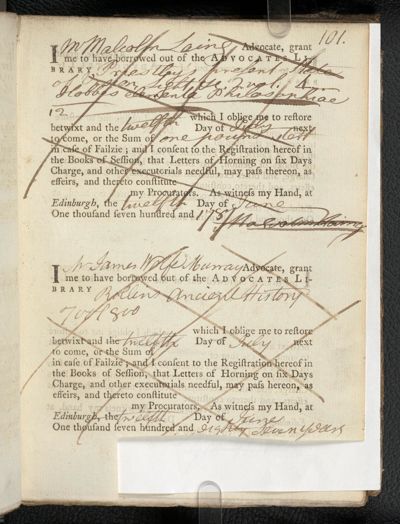 101.
I Mr Malcolm Laing Advocate, grant
me to have borrowed out of the ADVOCATES LI-
BRARY Priestley's present State
Hobbes's elementa Philosophiae
12
which I oblige me to restore
betwixt and the twelfth Day of July next
to come, or the Sum of one pound
in case of Failzie; and I consent to the Registration hereof in
the Books of Session, that Letters of Horning on six Days
Charge, and other executorials needful, may pass thereon, as
effeirs, and thereto constitute
my Procurators. As witness my Hand, at
Edinburgh, the twelfth Day of June
One thousand seven hundred and
Malcolm Laing
I Mr James Wolfe Murray Advocate, grant
me to have borrowed out of the ADVOCATES LI-
BRARY Rollin's Ancient History
which I oblige me to restore
betwixt and the twelfth Day of July next
to come, or the Sum of
in case of Failzie; and I consent to the Registration hereof in
the Books of Session, that Letters of Horning on six Days
Charge, and other executorials needful, may pass hereon, as
effeirs, and thereto constitute
my Procurators. As witness my Hand, at
Edinburgh, the twelfth Day of June
One thousand seven hundred and eighty Seven years